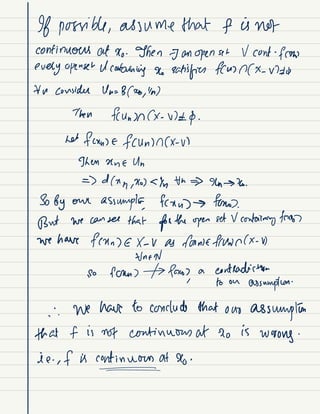 If possible, assume that f is not
continuous at x₀. Then ∃ an open set V cont. f(x₀)
every openset U containing x₀ satisfies f(U)∩(X-V)≠∅
∀n consider Uₙ = B(x₀, 1/n)
Then f(Uₙ)∩(X-V)≠∅.
Let f(xₙ) ∈ f(Uₙ)∩(X-V)
Then xₙ ∈ Uₙ
=> d(xₙ, x₀) < 1/n ∀n => xₙ → x₀.
So by our assumptn, f(xₙ) → f(x₀).
But we can see that for the open set V containing f(x₀)
we have f(xₙ) ∈ X-V as f(xₙ) ∈ f(Uₙ)∩(X-V)
∀n∈N
So f(xₙ) ↛ f(x₀), a contradiction
to our assumption.
∴ We have to conclude that our assumption
that f is not continuous at x₀ is wrong.
i.e., f is continuous at x₀.